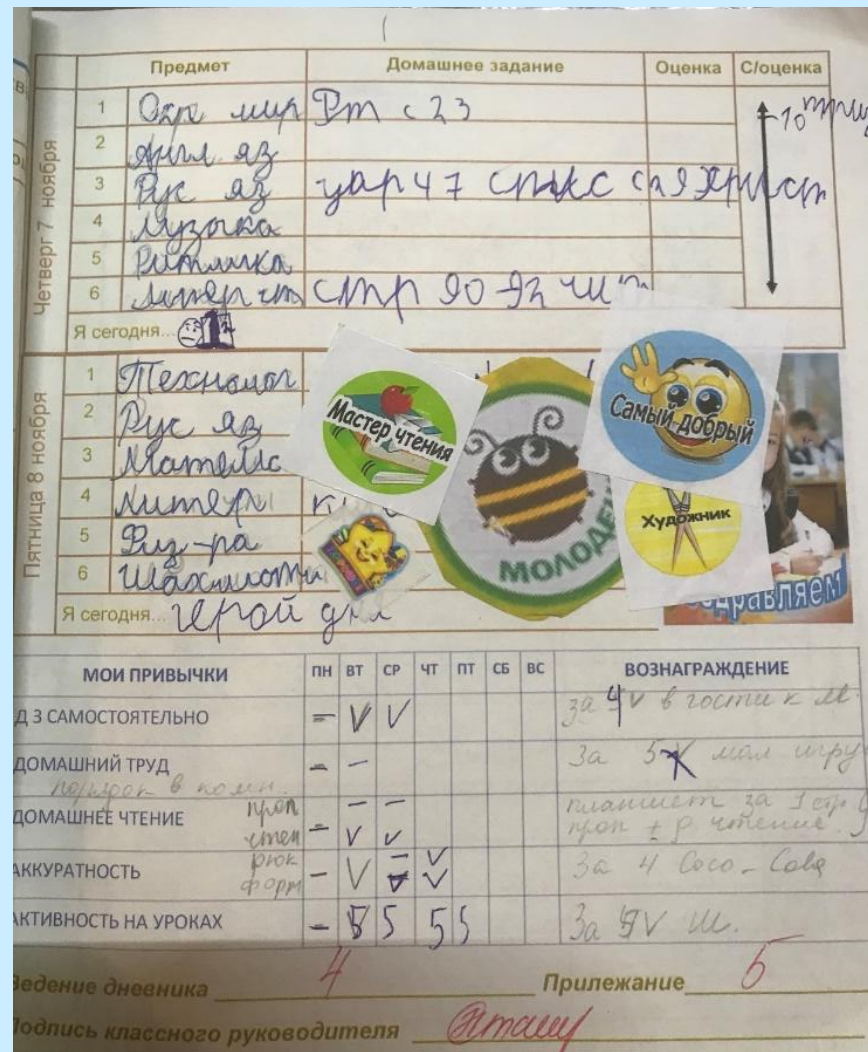 Предмет Домашнее задание Оценка С/оценка
Четверг 7 ноября
1 Окр мир Рт с 23
2 Англ яз
3 Рус яз упр 47
4 Музыка
5 Ритмика
6 Литер чт стр 90-92 чит
Я сегодня...
Пятница 8 ноября
1 Технолог
2 Рус яз
3 Матем
4 Литер
5 Физ-ра
6 Шахматы
Я сегодня... герой дня
Мастер чтения
МОЛОДЕЦ
Самый добрый
Художник
МОИ ПРИВЫЧКИ ПН ВТ СР ЧТ ПТ СБ ВС ВОЗНАГРАЖДЕНИЕ
Д З САМОСТОЯТЕЛЬНО – V V за 4 V в гости к
ДОМАШНИЙ ТРУД – – За 5 игру
порядок в комн.
ДОМАШНЕЕ ЧТЕНИЕ проп – – планшет за 1 стр
чтен – V V проп + чтение
АККУРАТНОСТЬ рюк – V – V За 4 Coco-Cola
форм V V
АКТИВНОСТЬ НА УРОКАХ – 5 5 5 5 За V Ш.
Ведение дневника 4 Прилежание 5
Подпись классного руководителя